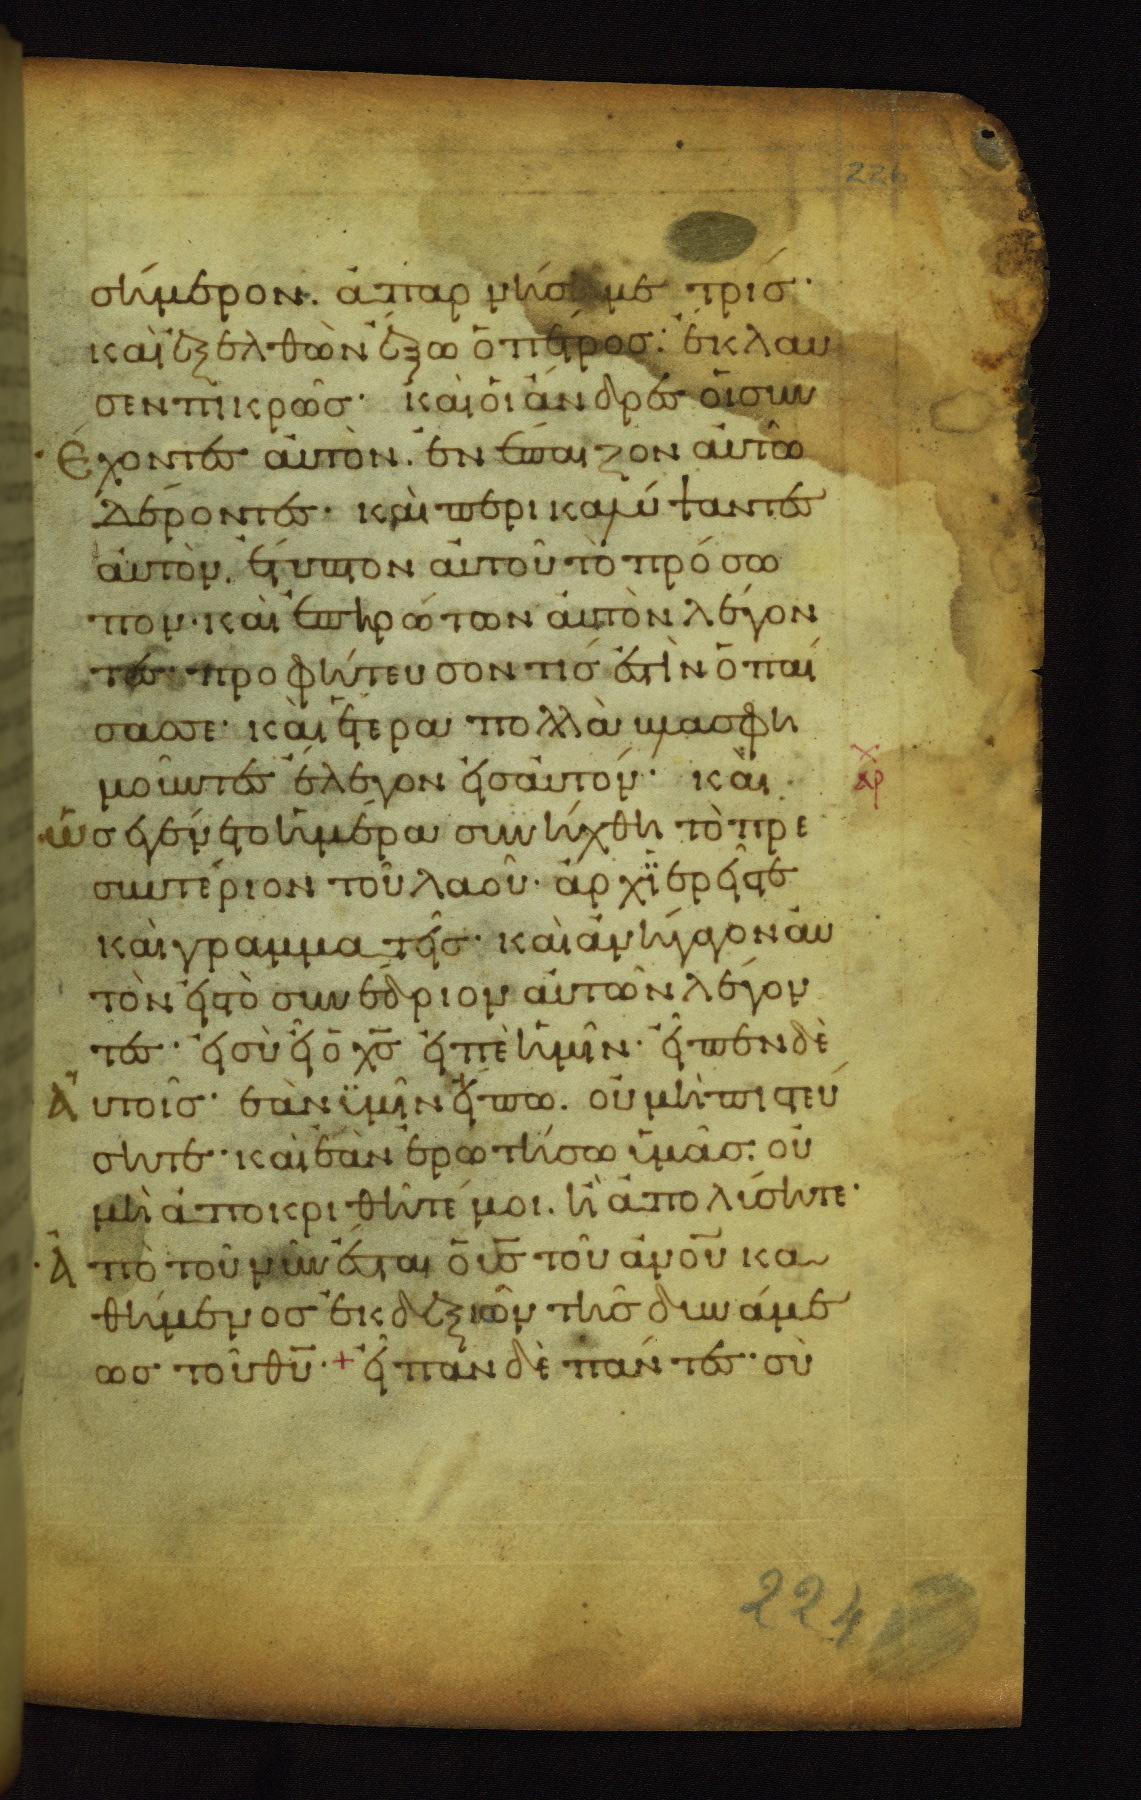 226
σήμερον. ἀπαρνήσῃ με τρίς·
καὶ ἐξελθὼν ἔξω ὁ πέτρος· ἔκλαυ
σεν πικρῶς· καὶ οἱ ἄνδρες οἱ συν
έχοντες αὐτὸν. ἐνέπαιζον αὐτῶ
δέροντες· καὶ περικαλύψαντες
αὐτὸν. ἔτυπτον αὐτοῦ τὸ πρόσω
πον· καὶ ἐπηρώτων αὐτὸν λέγον
τες· προφήτευσον τίς ἐστὶν ὁ παί
σας σε· καὶ ἕτερα πολλὰ βλασφη
μοῦντες ἔλεγον εἰς αὐτόν· καὶ
ὡς ἐγένετο ἡμέρα συνήχθη τὸ πρε
συτέριον τοῦ λαοῦ· ἀρχϊερεῖς τε
καὶ γραμματεῖς· καὶ ἀνήγαγον αὐ
τὸν εἰς τὸ συνέδριον αὐτῶν λέγον
τες· εἰ σὺ εἶ ὁ χς εἰπὲ ἡμῖν· εἶπεν δὲ
αὐτοῖς· ἐὰν ϋμῖν εἴπω. οὐ μὴ πιστεύ
σητε· καὶ ἐὰν ἐρωτήσω ὑμᾶς· οὐ
μὴ ἀποκριθῆτέ μοι. ἢ ἀπολύσητε·
ἀπὸ τοῦ νῦν ἔσται ὁ υς τοῦ ανου κα
θήμενος ἐκ δεξιῶν τῆς δυνάμε
ως τοῦ θυ· + εἶπαν δὲ πάντες· σὺ
224